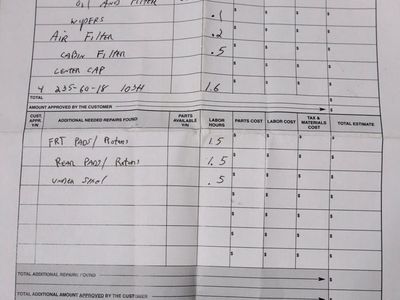 OIL AND FILTER
WIPERS .1
AIR FILTER .2
CABIN FILTER .5
CENTER CAP
4 235-60-18 103H 1.6
TOTAL
AMOUNT APPROVED BY THE CUSTOMER $
CUST. APPR. Y/N ADDITIONAL NEEDED REPAIRS FOUND PARTS AVAILABLE Y/N LABOR HOURS PARTS COST LABOR COST TAX & MATERIALS COST TOTAL ESTIMATE
FRT PADS/ Rotors 1.5 $ $ $ $
REAR PADS/ Rotors 1.5 $ $ $ $
UNDER .5 $ $ $ $
$ $ $ $
$ $ $ $
$ $ $ $
TOTAL ADDITIONAL REPAIRS FOUND $
TOTAL ADDITIONAL AMOUNT APPROVED BY THE CUSTOMER $